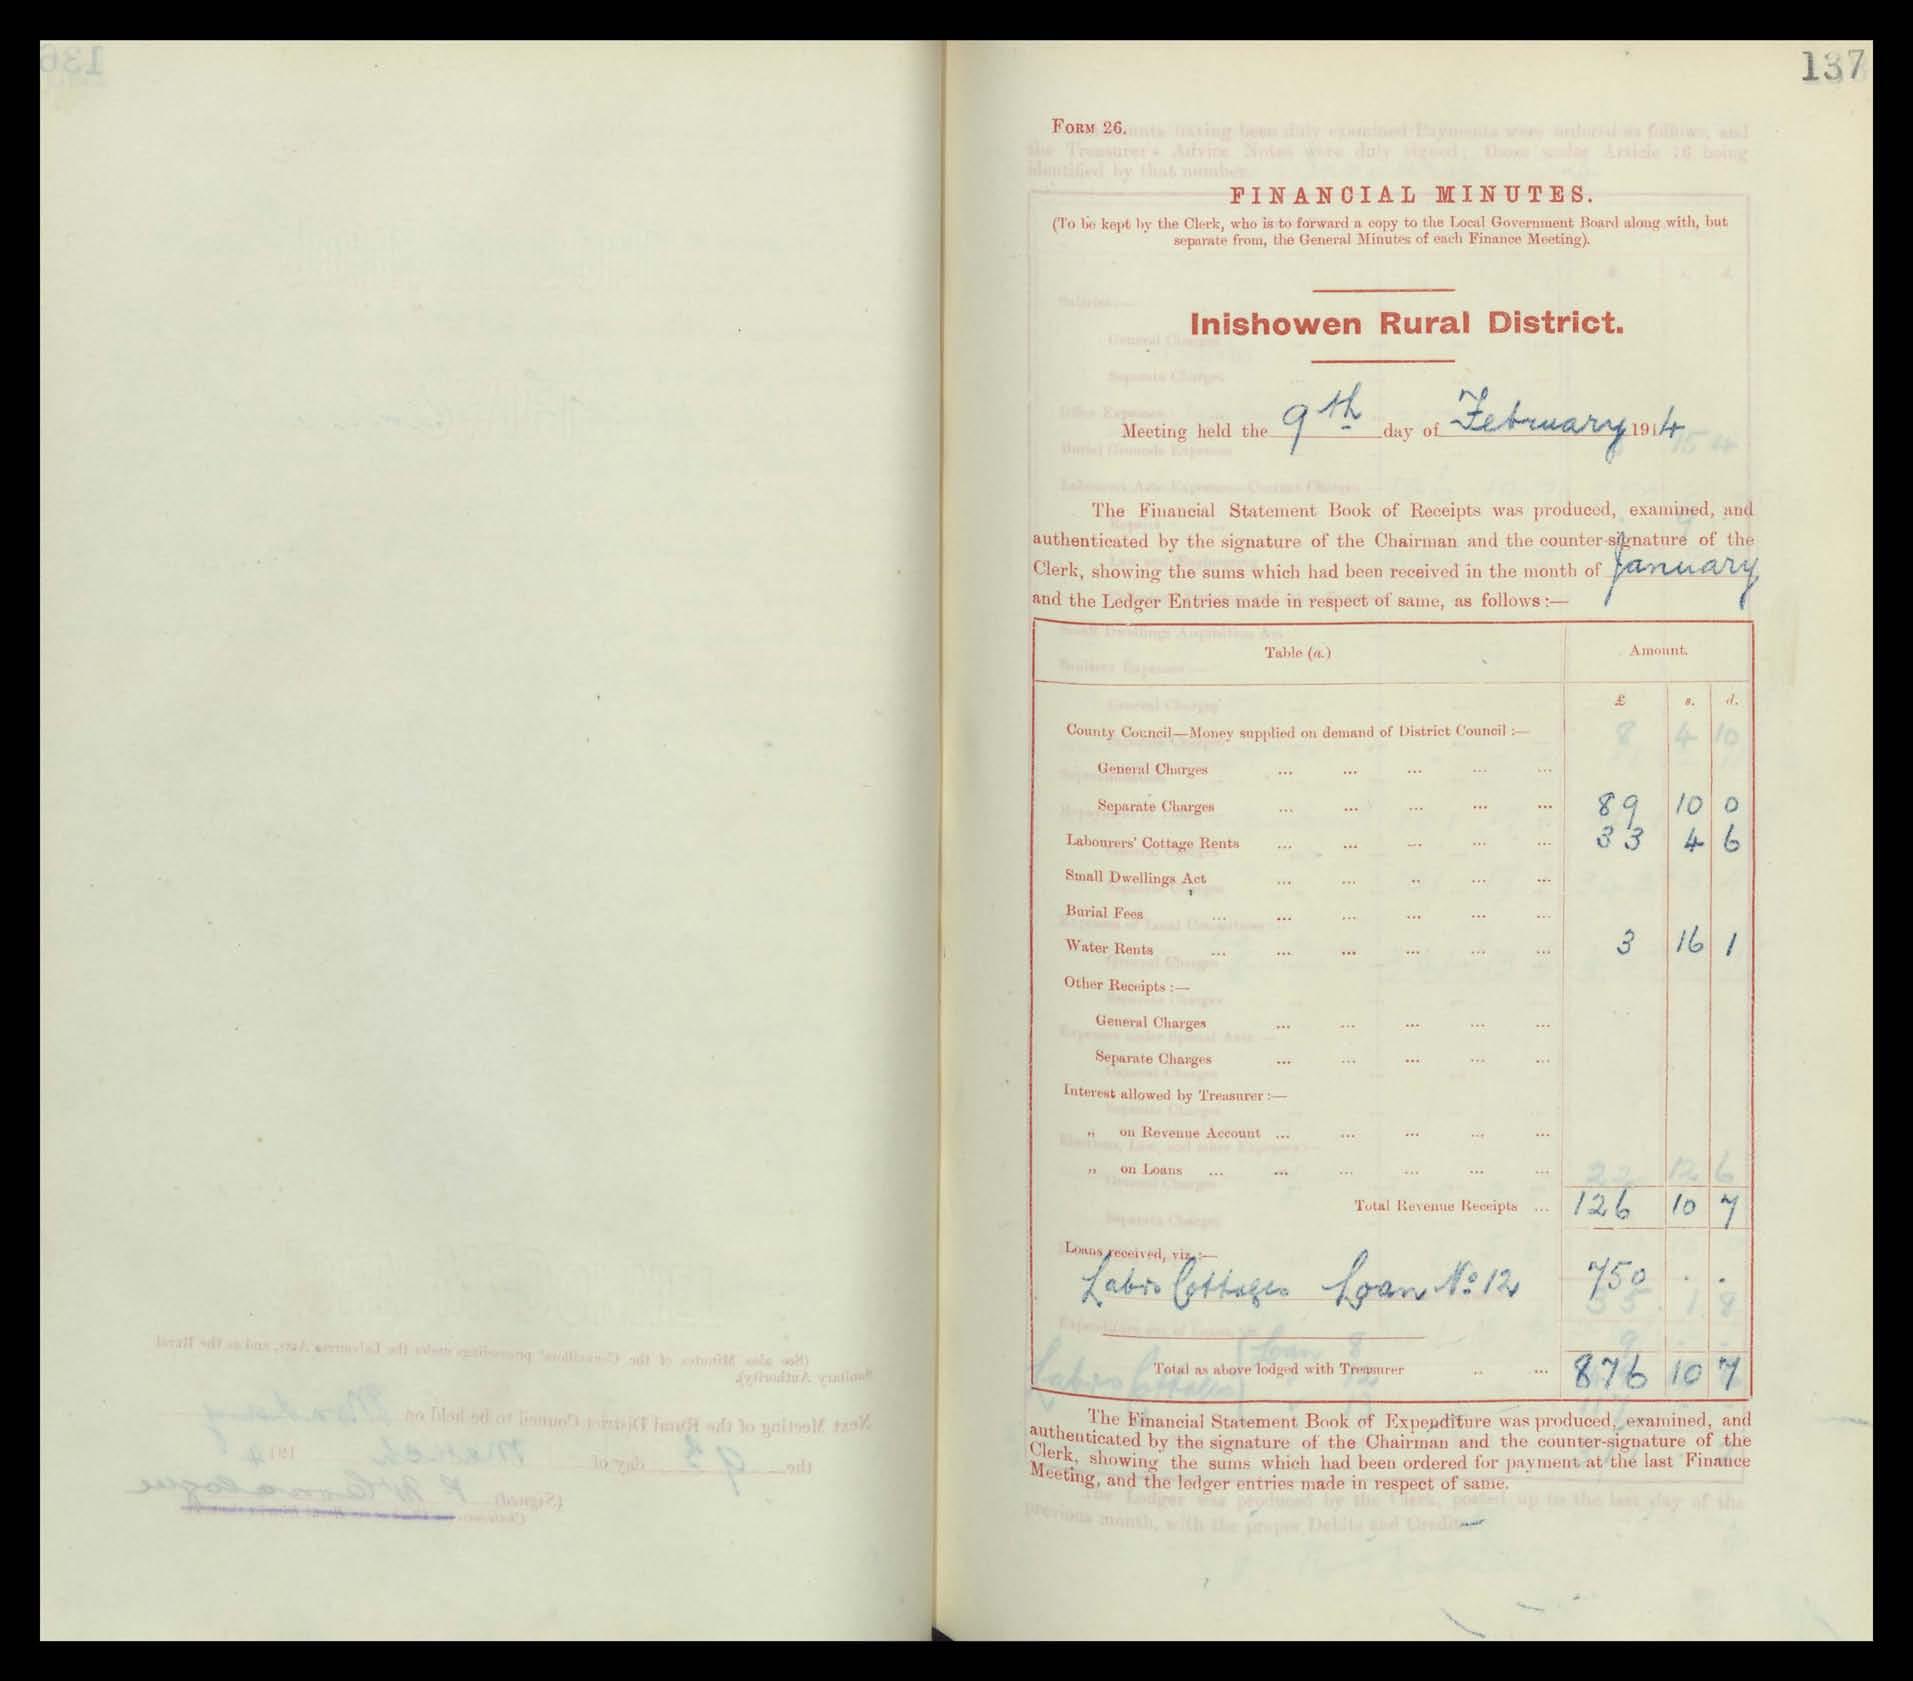 137
FORM 26.
FINANCIAL MINUTES.
(To be kept by the Clerk, who is to forward a copy to the Local Government Board along with, but
separate from, the General Minutes of each Finance Meeting).
Inishowen Rural District.
Meeting held the 9th day of February 1914
The Financial Statement Book of Receipts was produced, examined, and
authenticated by the signature of the Chairman and the counter-signature of the
Clerk, showing the sums which had been received in the month of January
and the Ledger Entries made in respect of same, as follows :—
Table (a.) Amount.
£ s. d.
County Council—Money supplied on demand of District Council :—
General Charges ... ... ... ... ...
Separate Charges ... ... ... ... ... 89 10 0
Labourers' Cottage Rents ... ... ... ... ... 33 4 6
Small Dwellings Act ... ... .. ... ...
Burial Fees ... ... ... ... ... ...
Water Rents ... ... ... ... ... ... 3 16 1
Other Receipts :—
General Charges ... ... ... ... ...
Separate Charges ... ... ... ... ...
Interest allowed by Treasurer :—
„ on Revenue Account ... ... ... ... ...
„ on Loans ... ... ... ... ... ...
Total Revenue Receipts ... 126 10 7
Loans received, viz. :—
Labrs Cottages Loan No 12 750 . .
Total as above lodged with Treasurer .. ... 876 10 7
The Financial Statement Book of Expenditure was produced, examined, and
authenticated by the signature of the Chairman and the counter-signature of the
Clerk, showing the sums which had been ordered for payment at the last Finance
Meeting, and the ledger entries made in respect of same.